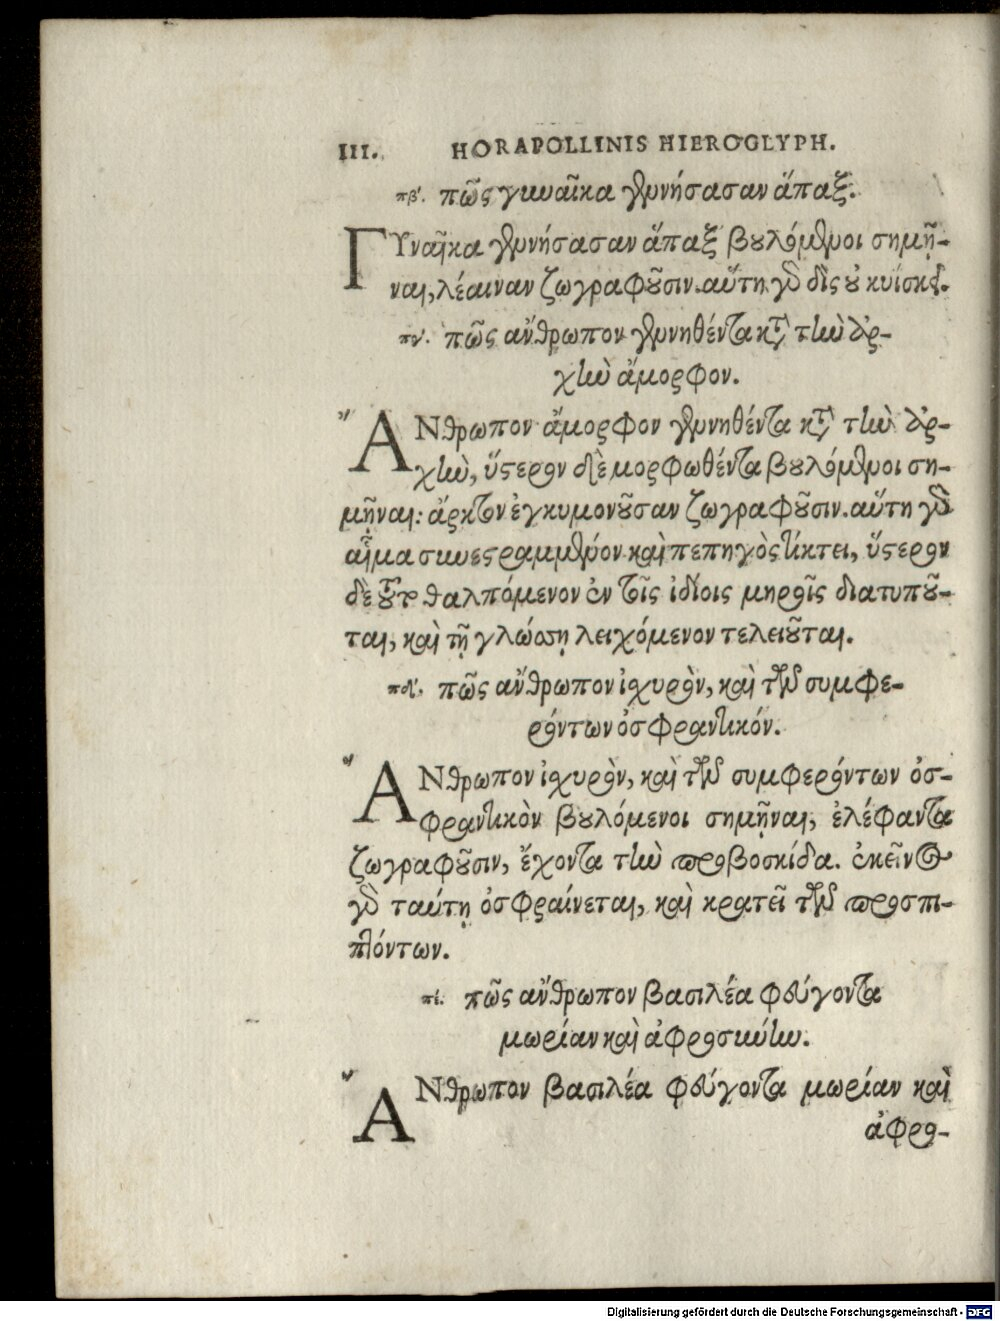 III. HORAPOLLINIS HIEROGLYPH.
πβ'. πῶς γυναῖκα γεννήσασαν ἅπαξ.
ΓΥναῖκα γεννήσασαν ἅπαξ βουλόμενοι σημῆ-
ναι, λέαιναν ζωγραφοῦσιν. αὕτη γὰρ δὶς οὐ κυΐσκει.
πγ'. πῶς ἄνθρωπον γεννηθέντα κατὰ τὴν ἀρ-
χὴν ἄμορφον.
ἌΝθρωπον ἄμορφον γεννηθέντα κατὰ τὴν ἀρ-
χὴν, ὕστερον δὲ μορφωθέντα βουλόμενοι ση-
μῆναι: ἄρκτον ἐγκυμονοῦσαν ζωγραφοῦσιν. αὕτη γὰρ
αἷμα συνεστραμμένον καὶ πεπηγὸς τίκτει, ὕστερον
δὲ τοῦτο θαλπόμενον ἐν τοῖς ἰδίοις μηροῖς διατυποῦ-
ται, καὶ τῇ γλώσσῃ λειχόμενον τελειοῦται.
πδ'. πῶς ἄνθρωπον ἰσχυρὸν, καὶ τῶν συμφε-
ρόντων ὀσφραντικόν.
ἌΝθρωπον ἰσχυρὸν, καὶ τῶν συμφερόντων ὀσ-
φραντικὸν βουλόμενοι σημῆναι, ἐλέφαντα
ζωγραφοῦσιν, ἔχοντα τὴν προβοσκίδα. ἐκεῖνος
γὰρ ταύτῃ ὀσφραίνεται, καὶ κρατεῖ τῶν προσπι-
πτόντων.
πέ. πῶς ἄνθρωπον βασιλέα φεύγοντα
μωρίαν καὶ ἀφροσύνην.
ἌΝθρωπον βασιλέα φεύγοντα μωρίαν καὶ
ἀφρο-
Digitalisierung gefördert durch die Deutsche Forschungsgemeinschaft - DFG